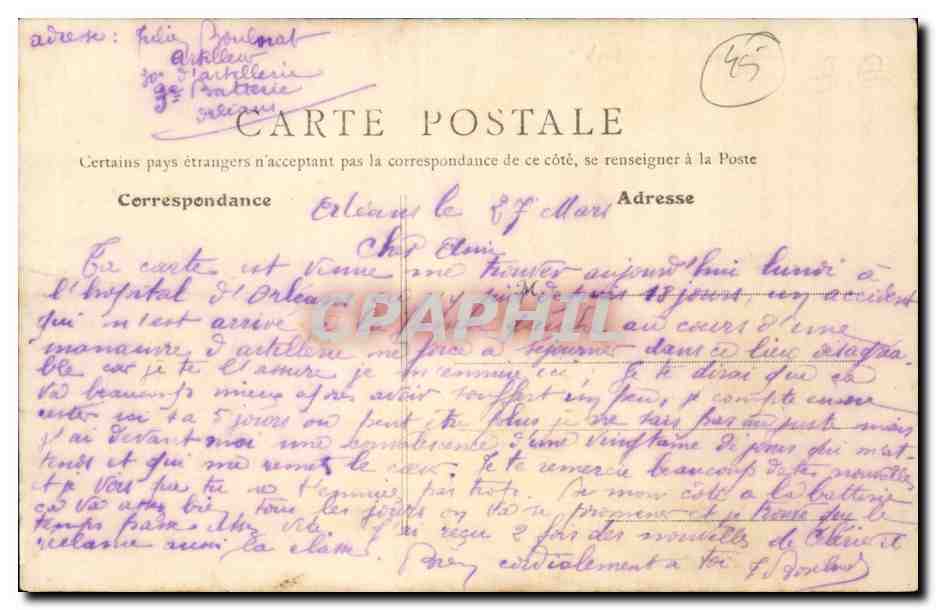 adresse: Boulnat
Artilleur
30e d'artillerie
9e Batterie
Orléans
45
CARTE POSTALE
Certains pays étrangers n'acceptent pas la correspondance de ce côté, se renseigner à la Poste
Correspondance
Adresse
Orléans le 27 Mars
Cher Ami
Ta carte est venue me trouver aujourd'hui lundi à
l'hopital d'Orléans suis depuis 18 jours un accident
qui m'est arrivé au cours d'une
manœuvre d'artillerie me force à séjourner dans ce lieu désagréa-
ble car je te l'assure je m'ennuie ici. Je te dirai que ça
va beaucoup mieux après avoir souffert un peu, je compte encore
rester ici 4 a 5 jours ou peut être plus je ne sais pas au juste mais
j'ai devant moi une convalescence d'une vingtaine de jours qui m'at-
tends et qui me remet le cœur. Je te remercie beaucoup de tes nouvelles
et je vois que tu ne t'ennuies pas trop. De mon côté a la batterie
ça va assez bien, tous les jours on va se promener et je trouve que le
temps passe assez vite. J'ai reçu 2 fois des nouvelles de et
réclame aussi la classe.
Bien cordialement a toi
CPARPHIL